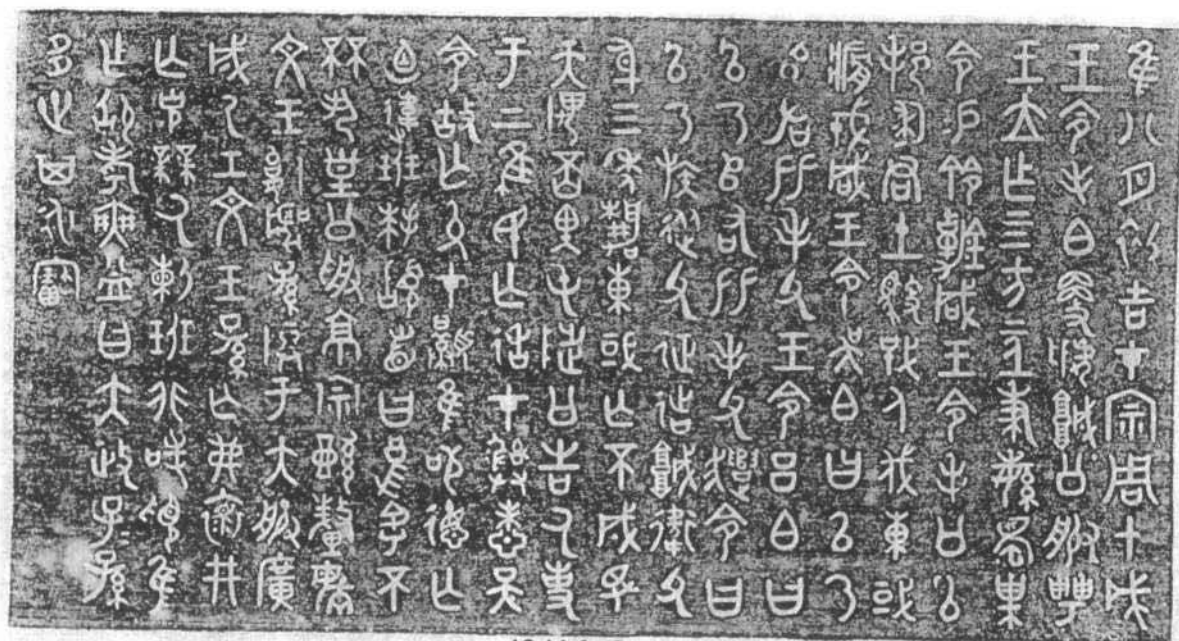 隹八月初吉才宗周甲戌
王令毛白更虢城公服粤
王立乍四方亟秉繁蜀巢
令易鈴勒咸王令毛公以
邦冢君土馭戜人伐東或
痟戎咸王令吳白曰以乃
𠂤左比毛父王令呂白曰
以乃𠂤右比毛父趞令曰
以乃族從父征城衛父
身三年靜東或亡不成
天畏否畀屯陟公告厥事
于上隹民亡才彝天
令故亡允才顯隹敬德亡
攸違班拜稽首曰烏虖不
丮皇公受京宗懿釐毓
文王王姒聖孫隥于大服廣
成厥工文王孫亡弗褱井
亡克競厥剌班非敢覓隹
乍卲考爽益曰大政子子孫
多世其永寶